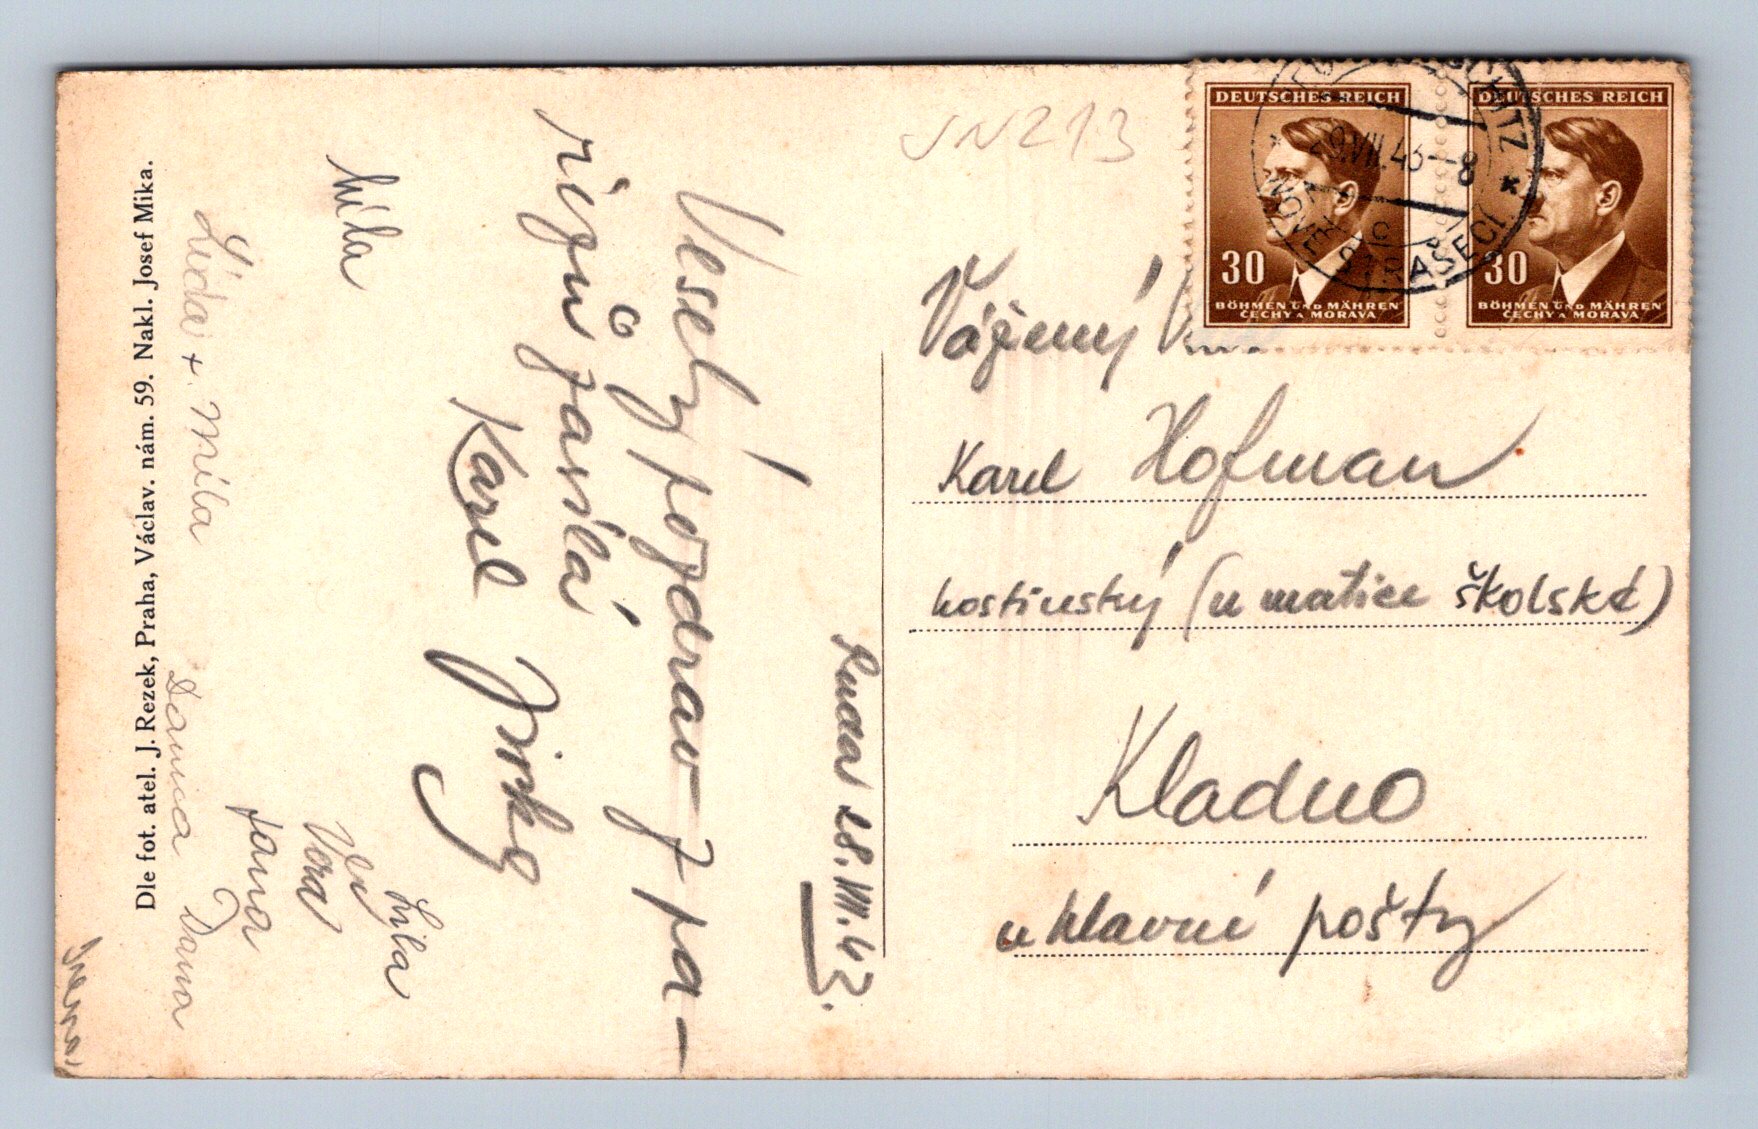 JN213
DEUTSCHES REICH
30
BÖHMEN UND MÄHREN
ČECHY A MORAVA
DEUTSCHES REICH
30
BÖHMEN UND MÄHREN
ČECHY A MORAVA
SCHITZ
29.VIII.43-8
NOVÉ STRAŠECÍ
Vážený
Karel Hofman
hostinský (u matice školské)
Kladno
u hlavní pošty
28.VIII.43.
Veselý pozdrav z pa-
řízů zasílá
Karel
Míla
Lída + Míla
Jana
Věra
Míla
Dana
Dle fot. atel. J. Rezek, Praha, Václav. nám. 59. Nakl. Josef Mika.